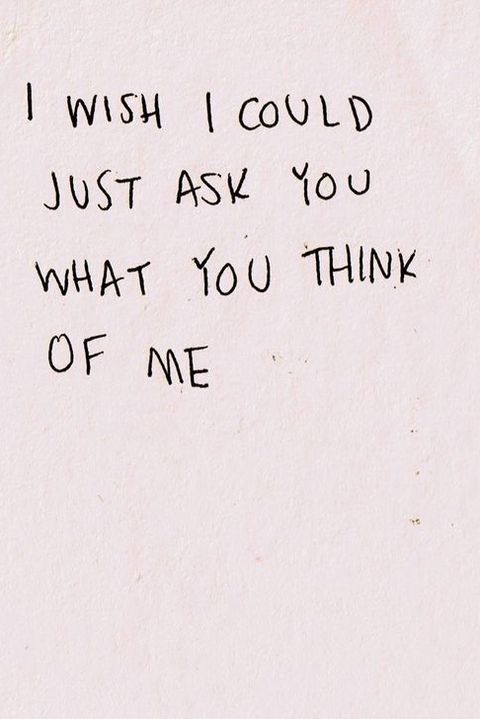 I WISH I COULD
JUST ASK YOU
WHAT YOU THINK
OF ME